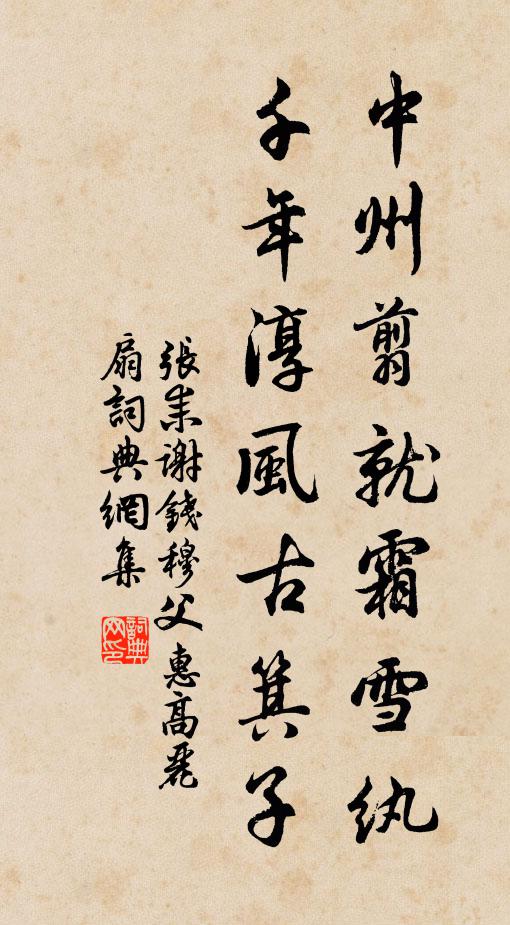 中州翦就霜雪紈
千年淳風古箕子
張耒謝錢穆父惠高麗
扇詞典網集
詞典网印